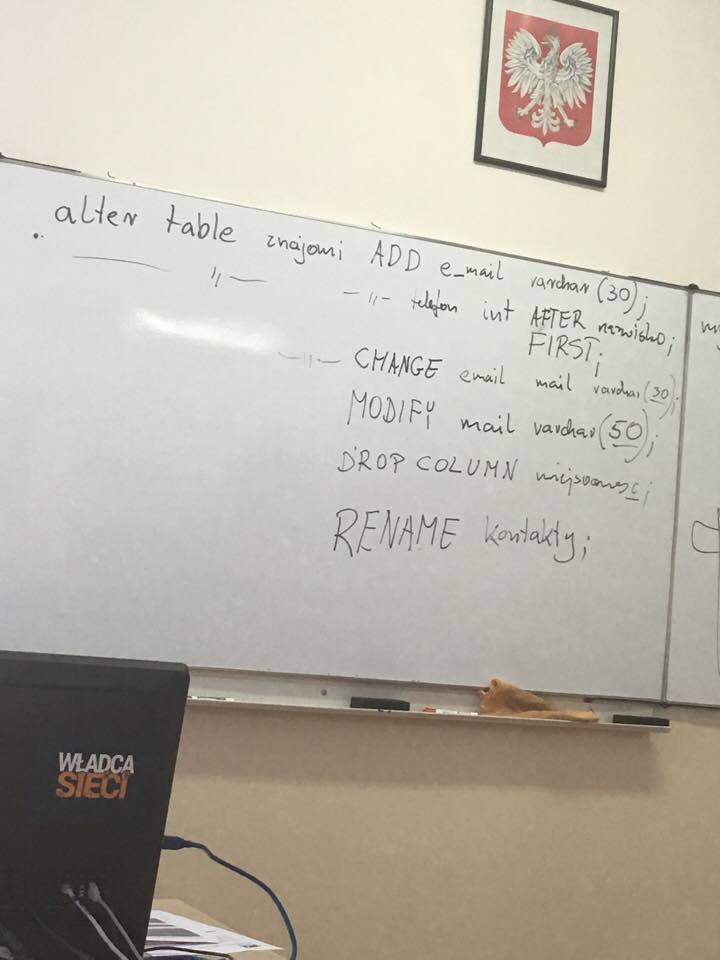 alter table znajomi ADD e_mail varchar(30);
—〃— —〃— telefon int AFTER nazwisko;
FIRST;
—〃— CHANGE email mail varchar(30);
MODIFY mail varchar(50);
DROP COLUMN miejscowosc;
RENAME kontakty;
WŁADCA
SIECI